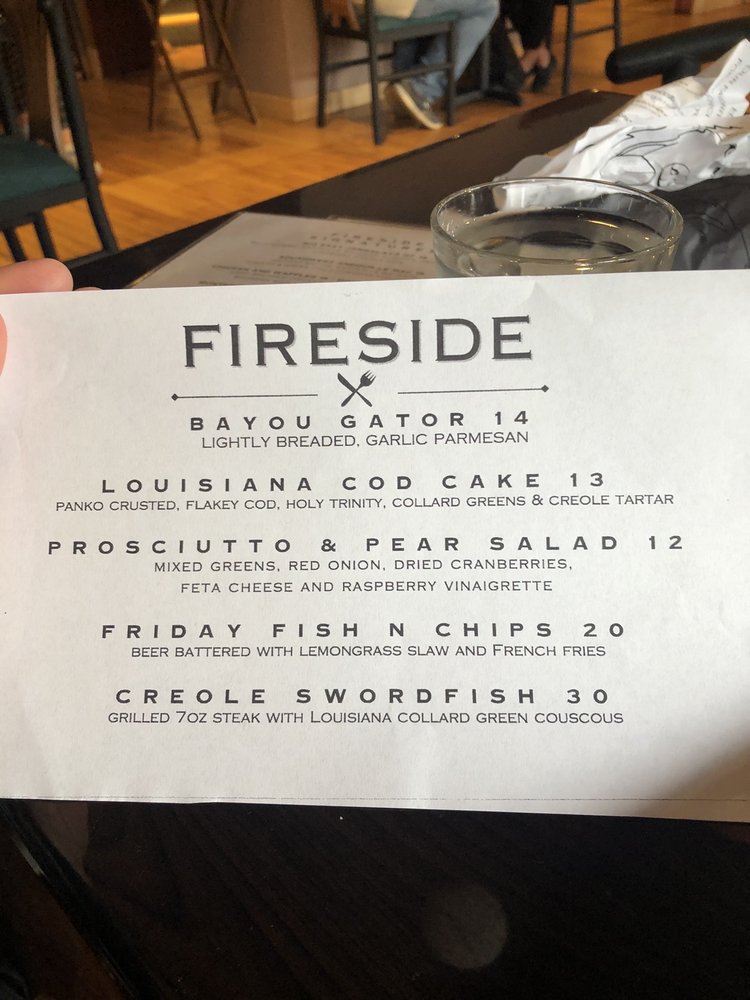 FIRESIDE
FIRESIDE
BAYOU GATOR 14
LIGHTLY BREADED, GARLIC PARMESAN
LOUISIANA COD CAKE 13
PANKO CRUSTED, FLAKEY COD, HOLY TRINITY, COLLARD GREENS & CREOLE TARTAR
PROSCIUTTO & PEAR SALAD 12
MIXED GREENS, RED ONION, DRIED CRANBERRIES,
FETA CHEESE AND RASPBERRY VINAIGRETTE
FRIDAY FISH N CHIPS 20
BEER BATTERED WITH LEMONGRASS SLAW AND FRENCH FRIES
CREOLE SWORDFISH 30
GRILLED 7OZ STEAK WITH LOUISIANA COLLARD GREEN COUSCOUS